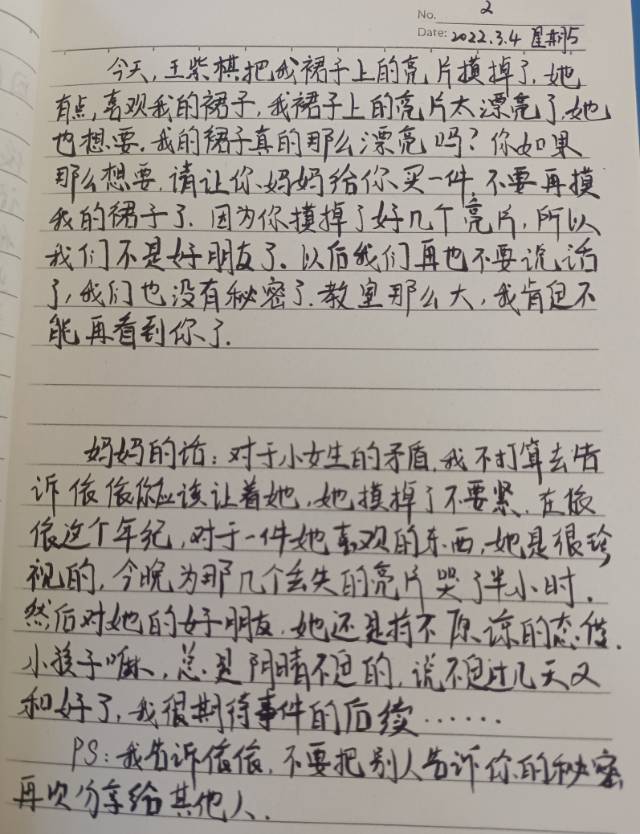 No. 2
Date: 2022.3.4 星期5
今天,王紫棋把我裙子上的亮片摸掉了,她
有点,喜欢我的裙子,我裙子上的亮片太漂亮了,她
也想要。我的裙子真的那么漂亮吗?你如果
那么想要,请让你妈妈给你买一件,不要再摸
我的裙子了。因为你摸掉了好几个亮片,所以
我们不是好朋友了。以后我们再也不要说话
了,我们也没有秘密了。教室那么大,我肯定不
能再看到你了。
妈妈的话:对于小女生的矛盾,我不打算去告
诉依依你应该让着她,她摸掉了不要紧,在依
依这个年纪,对于一件她喜欢的东西,她是很珍
视的,今晚为那几个丢失的亮片哭了半小时,
然后对她的好朋友,她还是持不原谅的态度。
小孩子嘛,总是阴晴不定的,说不定过几天又
和好了,我很期待事件的后续……
PS:我告诉依依,不要把别人告诉你的秘密
再次分享给其他人.